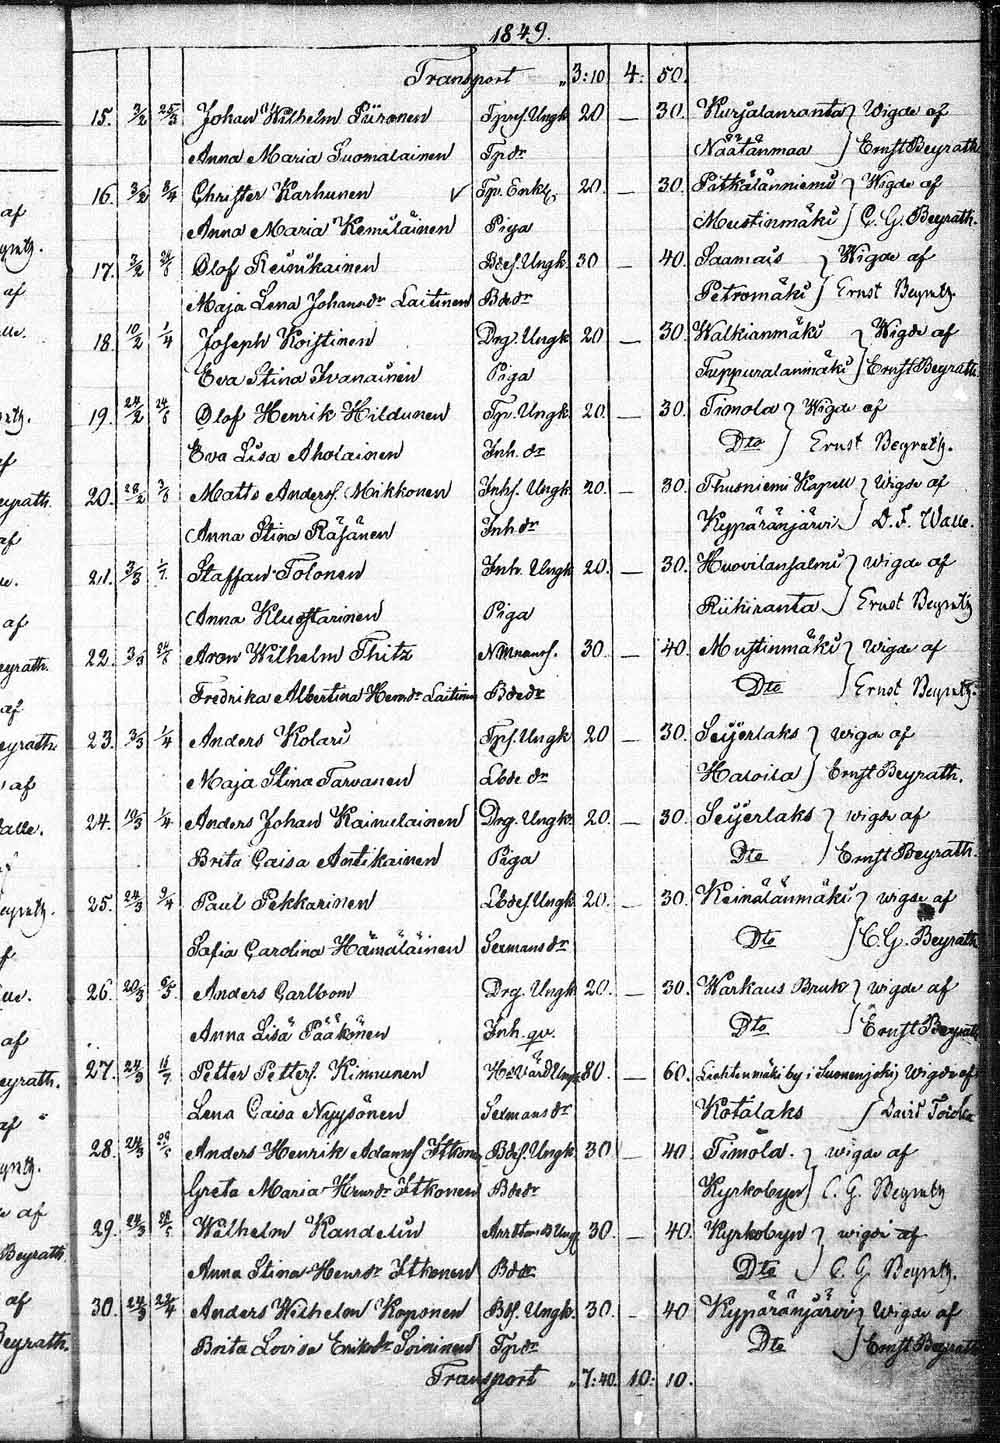 1849.
Transport „ 3:10 4: 50.
15. 3/2 25/3 Johan Wilhelm Piironen Tpsf. Ungk 20 — 30. Kurjalanranta } Wigde af
Anna Maria Suomalainen Tpdr Näätänmaa } Ernst Beyrath
16. 3/2 8/4 Christer Karhunen √ Tp. Enkl. 20. — 30. Pätkälänniemi } Wigde af
Anna Maria Kemiläinen Piga Mustinmäki } C. G. Beyrath.
17. 3/2 Olof Reinikainen Bdesf. Ungk 30 — 40. Saamais } Wigde af
Maja Lena Johansdr Laitinen Bdedr Petromäki } Ernst Beyrath.
18. 10/2 1/4 Joseph Koistinen Drg. Ungk 20 — 30. Walkianmäki } Wigde af
Eva Stina Ivanainen Piga Tuppuralanmäki } Ernst Beyrath.
19. 24/2 Olof Henrik Hildunen Tp. Ungk. 20. — 30. Timola } Wigde af
Eva Lisa Aholainen Inh. dr Dto } Ernst Beyrath.
20. Matts Andersf. Mikkonen Inhsf. Ungk. 20. — 30. Thusniemi Kapell } Wigde af
Anna Stina Räsänen Inhdr Kypäränjärvi } D. F. Walle.
21. 3/3 Staffan Tolonen Inh. Ungk 20. — 30. Huovilansalmi } wigde af
Anna Kluustarinen Piga Riikiranta } Ernst Beyrath
22. 3/3 Aron Wilhelm Thitz 30. — 40. Mustinmäki } wigde af
Fredrika Albertina Henrdr Laitinen Bdedr Dto } Ernst Beyrath.
23. 3/3 1/4 Anders Kolari Tpsf. Ungk 20 — 30. Seijerlaks } wigde af
Maja Stina Tarvanen Lbde dr Haloila } Ernst Beyrath.
24. 10/3 1/4 Anders Johan Kainulainen Drg. Ungk. 20. — 30. Seijerlaks } wigde af
Brita Caisa Antikainen Piga Dto } Ernst Beyrath.
25. 24/3 9/4 Paul Pekkarinen Lbdesf. Ungk 20. — 30. Keinälänmäki } wigde af
Sofia Carolina Hämäläinen Sexmansdr Dto } C. G. Beyrath
26. 20/3 Anders Carlbom Drg. Ungk 20. — 30. Warkaus Bruk } wigde af
Anna Lisa Pääkönen Inh. qv. Dto } Ernst Beyrath
27. 24/3 Petter Pettersf. Kinnunen 80. — 60. by i Suonenjoki } Wigde af
Lena Caisa Nyysönen Sexmansdr Kotalaks }
28. 24/3 Anders Henrik Adamsf Itkonen Bdesf. Ungk 30 — 40 Timola. } wigde af
Greta Maria Henrdr Itkonen Bdedr Kyrkobyn } C. G. Beyrath
29. 24/3 Wilhelm Kandelin 30. — 40. Kyrkobyn } wigde af
Anna Stina Henrdr Itkonen Bdedr Dto } C. G. Beyrath.
30. 24/3 22/4 Anders Wilhelm Koponen Bdsf. Ungk. 30. — 40 Kypäränjärvi } Wigde af
Brita Lovisa Eriksdr Soininen Tpdr Dto } Ernst Beyrath
Transport „ 7:40. 10: 10.